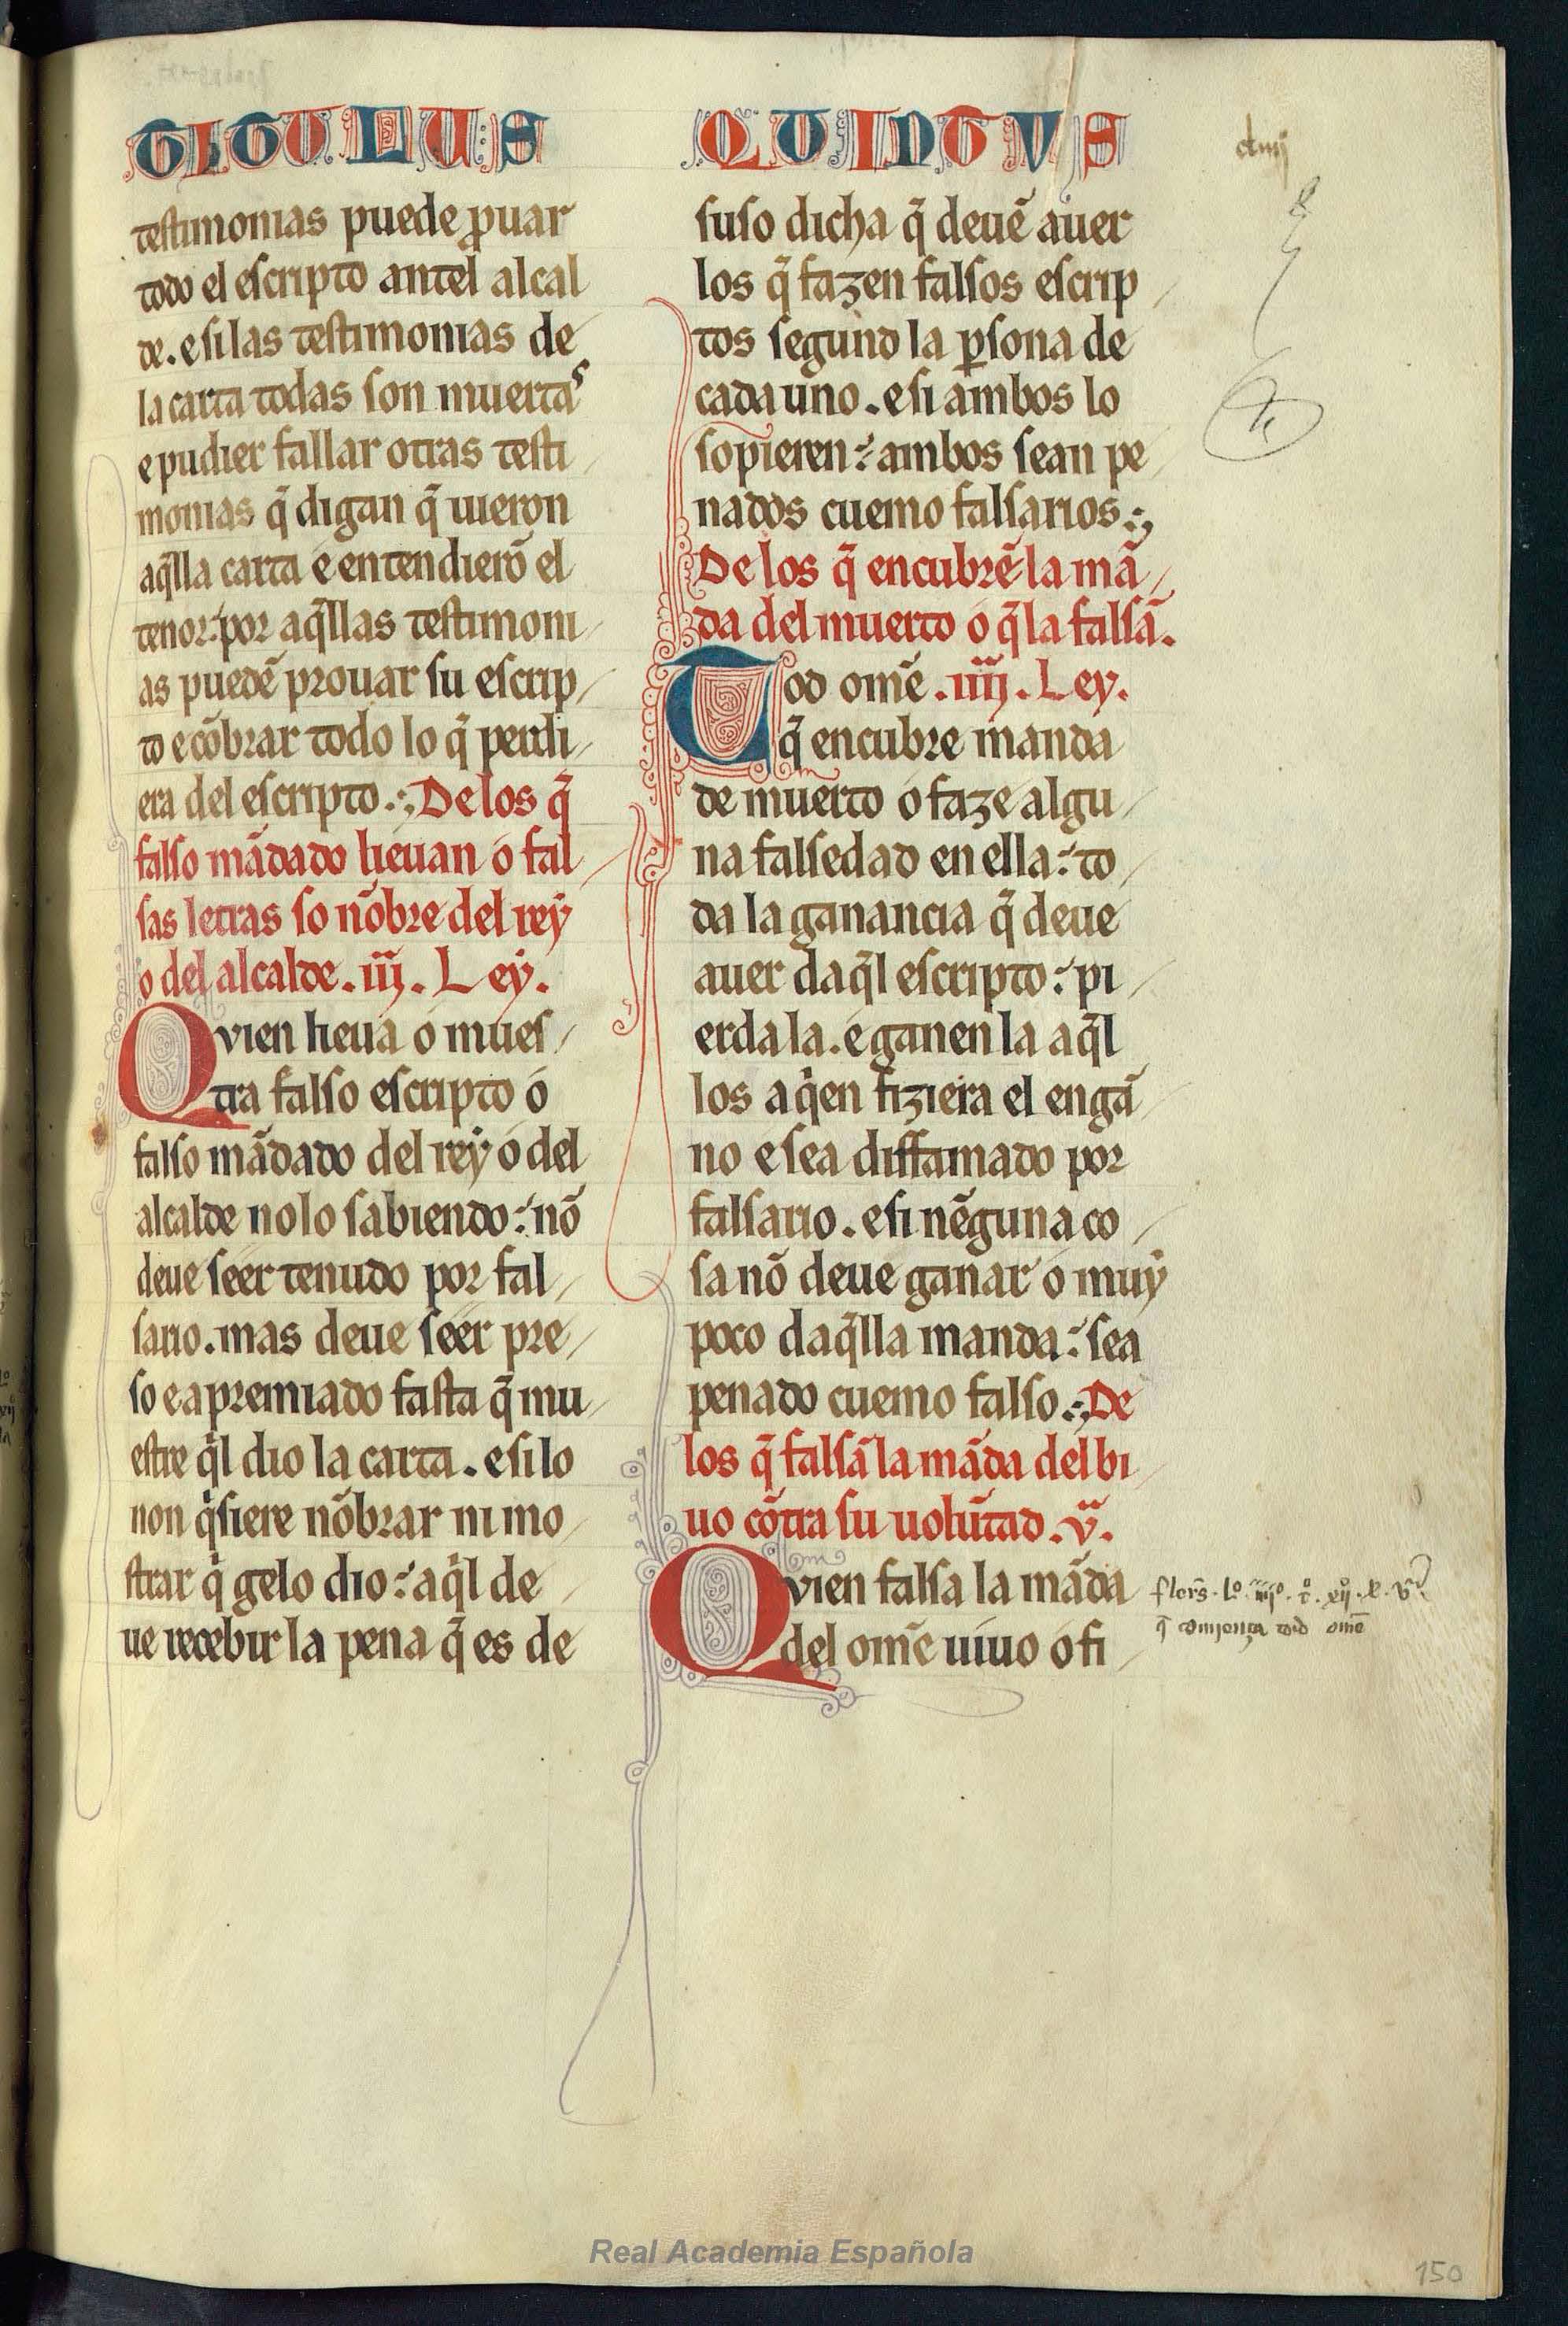 TITULUS QUINTVS
testimonias puede ꝓuar
todo el escripto antel alcal
de. e si las testimonias de
la carta todas son muertas
e pudier fallar otras testi
monias q̃ digan q̃ uieron
aq̃lla carta é entendierõ el
tenor: por aq̃llas testimoni
as puedẽ prouar su escrip
to e cõbrar todo lo q̃ perdi
era del escripto. De los q̃
falso mãdado lieuan ó fal
sas letras so nõbre del rey
o del alcalde. iii. Ley.
Qvien lieua ó mues
tra falso escripto ó
falso mãdado del rey ó del
alcalde no lo sabiendo: nõ
deue séer tenudo por fal
sario. mas deue séer pre
so e apremiado fasta q̃ mu
estre q̃l dio la carta. e si lo
non q̃siere nõbrar ni mo
strar q̃ gelo dio: aq̃l de
ue recebir la pena q̃ es de
suso dicha q̃ deuẽ auer
los q̃ fazen falsos escrip
tos segund la ꝑsona de
cada uno. e si ambos lo
sopieren: ambos sean pe
nados cuemo falsarios.
De los q̃ encubrẽ la mã
da del muerto ó q̃ la falsã.
Tod omẽ .iiii. Ley.
q̃ encubre manda
de muerto ó faze algu
na falsedad en ella: to
da la ganancia q̃ deue
auer daq̃l escripto: pi
erda la. é ganen la aq̃l
los a q̃en fiziera el engã
no e sea diffamado por
falsario. e si nẽguna co
sa nõ deue ganar ó muy
poco daq̃lla manda: sea
penado cuemo falso. De
los q̃ falsã la mãda del bi
uo cõtra su uolũtad. v.
Qvien falsa la mãda
del omẽ uiuo ó fi
q̃ comiença tod omẽ
Real Academia Española
150